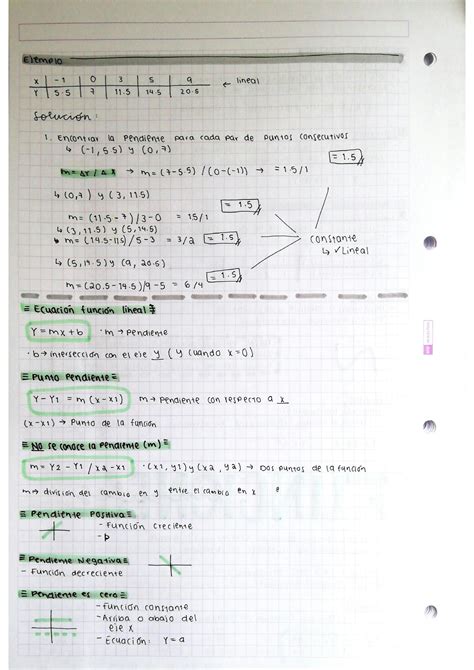 Ejemplo
x | -1 | 0 | 3 | 5 | 9 ← lineal
Y | 5.5 | 7 | 11.5 | 14.5 | 20.5
Solución:
1. Encontrar la pendiente para cada par de puntos consecutivos
↳ (-1, 5.5) y (0,7)
= 1.5
m = ΔY / ΔX → m = (7-5.5) / (0-(-1)) → = 1.5/1
↳ (0,7) y (3, 11.5)
= 1.5
m = (11.5 - 7)/3-0 = 1.5/1
↳ (3, 11.5) y (5, 14.5)
↳ m = (14.5-11.5)/5-3 = 3/2 = 1.5
constante
↳ ✓ Lineal
↳ (5, 14.5) y (9, 20.5)
= 1.5
m = (20.5 - 14.5)/9-5 = 6/4
≡ Ecuación función lineal ≡
Y = mx + b · m → Pendiente
· b → intersección con el eje y (y cuando x = 0)
≡ Punto Pendiente ≡
Y - Y1 = m (x-x1) m → Pendiente con respecto a x
(x-x1) → Punto de la función
≡ No se conoce la pendiente (m) ≡
m = Y2 - Y1 / x2 - x1 · (x1, y1) y (x2, y2) → Dos puntos de la función
m → división del cambio en y entre el cambio en x
≡ Pendiente Positiva ≡
- Función creciente
≡ Pendiente Negativa ≡
- Función decreciente
≡ Pendiente es cero ≡
- Función constante
- Arriba o abajo del eje x
- Ecuación: Y = a